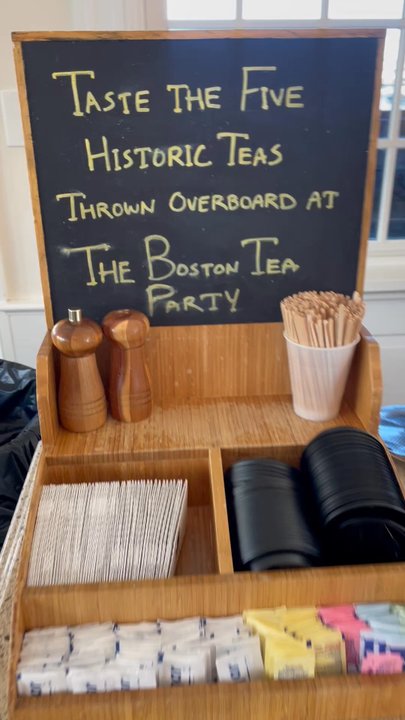 TASTE THE FIVE
HISTORIC TEAS
THROWN OVERBOARD AT
THE BOSTON TEA
PARTY